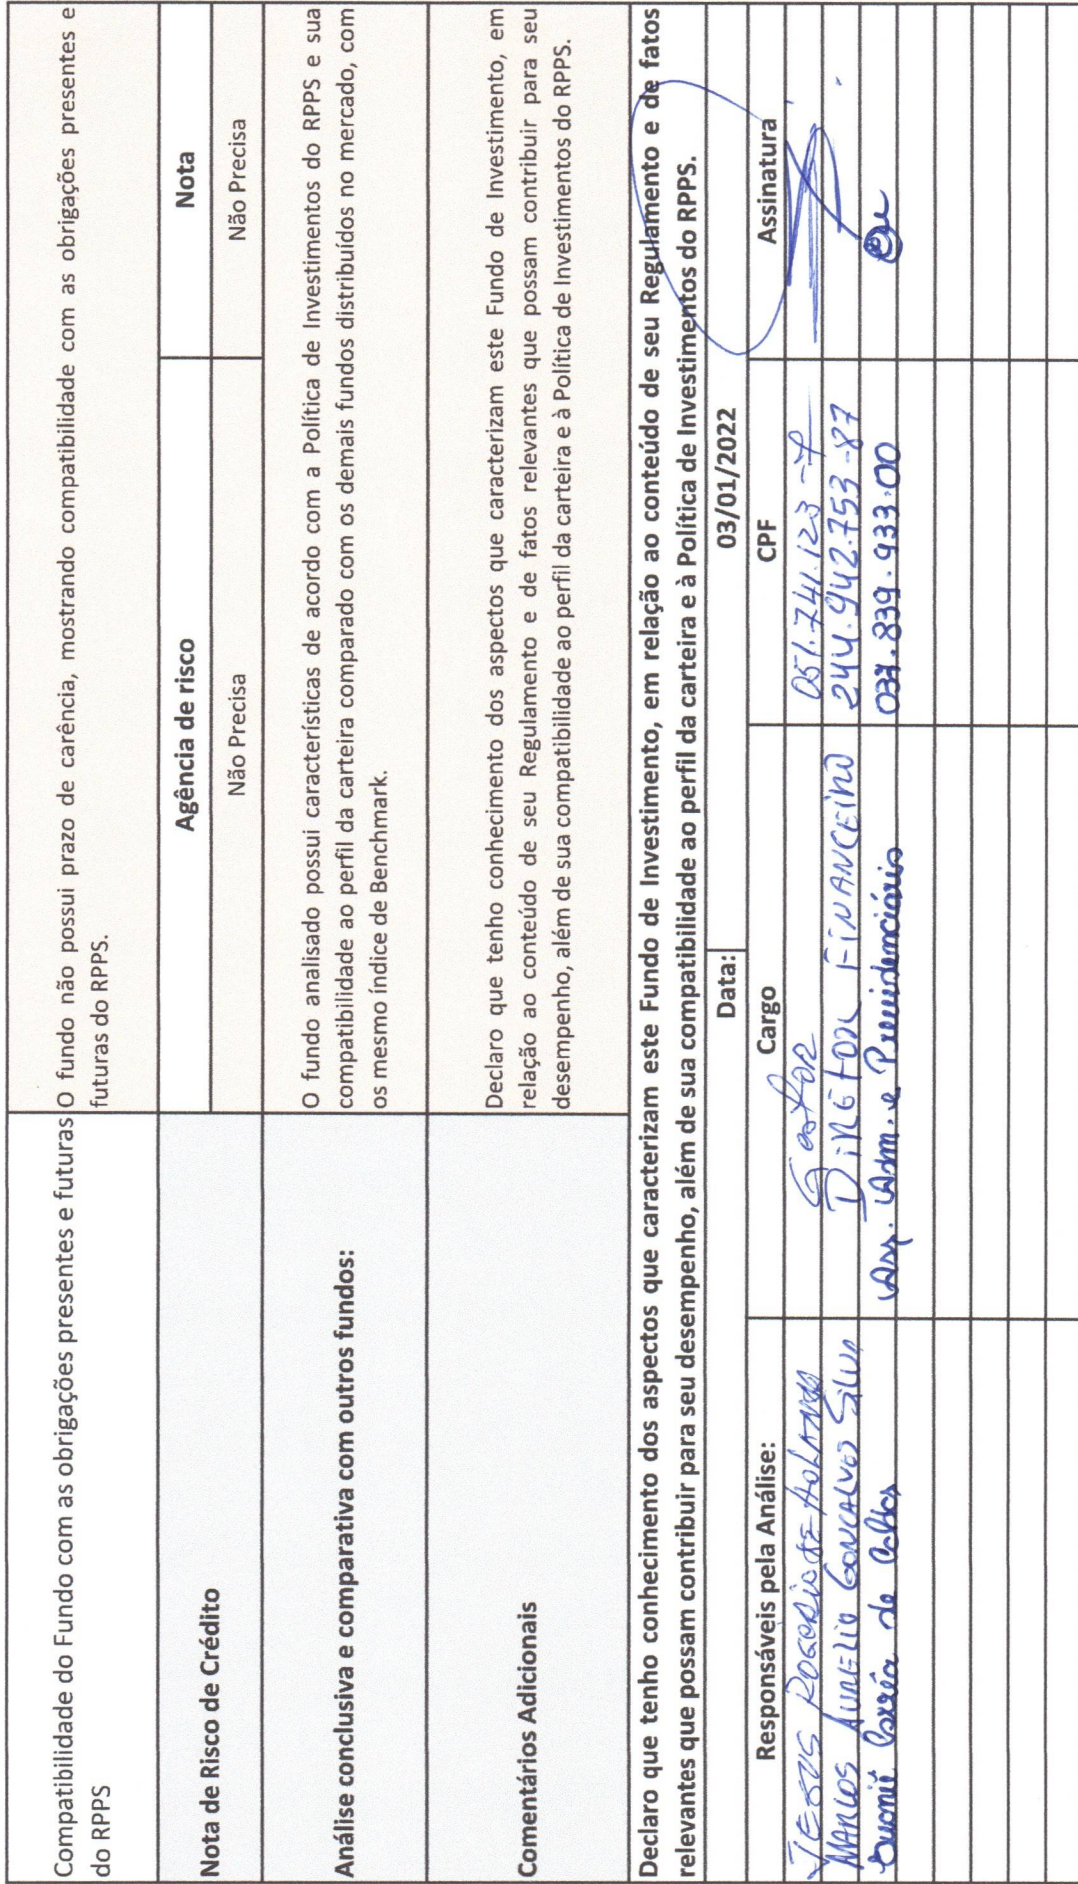 Compatibilidade do Fundo com as obrigações presentes e futuras
do RPPS
O fundo não possui prazo de carência, mostrando compatibilidade com as obrigações presentes e
futuras do RPPS.
Nota de Risco de Crédito
Agência de risco
Nota
Não Precisa
Não Precisa
Análise conclusiva e comparativa com outros fundos:
O fundo analisado possui características de acordo com a Política de Investimentos do RPPS e sua
compatibilidade ao perfil da carteira comparado com os demais fundos distribuídos no mercado, com
os mesmo índice de Benchmark.
Comentários Adicionais
Declaro que tenho conhecimento dos aspectos que caracterizam este Fundo de Investimento, em
relação ao conteúdo de seu Regulamento e de fatos relevantes que possam contribuir para seu
desempenho, além de sua compatibilidade ao perfil da carteira e à Política de Investimentos do RPPS.
Declaro que tenho conhecimento dos aspectos que caracterizam este Fundo de Investimento, em relação ao conteúdo de seu Regulamento e de fatos
relevantes que possam contribuir para seu desempenho, além de sua compatibilidade ao perfil da carteira e à Política de Investimentos do RPPS.
Data: 03/01/2022
Responsáveis pela Análise: Cargo CPF Assinatura
JESUS ROGERIO DE HOLANDA Gestor 051.741.123
MARCOS AURELIO GONCALVES SILVA DIRETOR FINANCEIRO 244.942.753-87
Correia de Adm. e Previdenciário 037.839.933.00